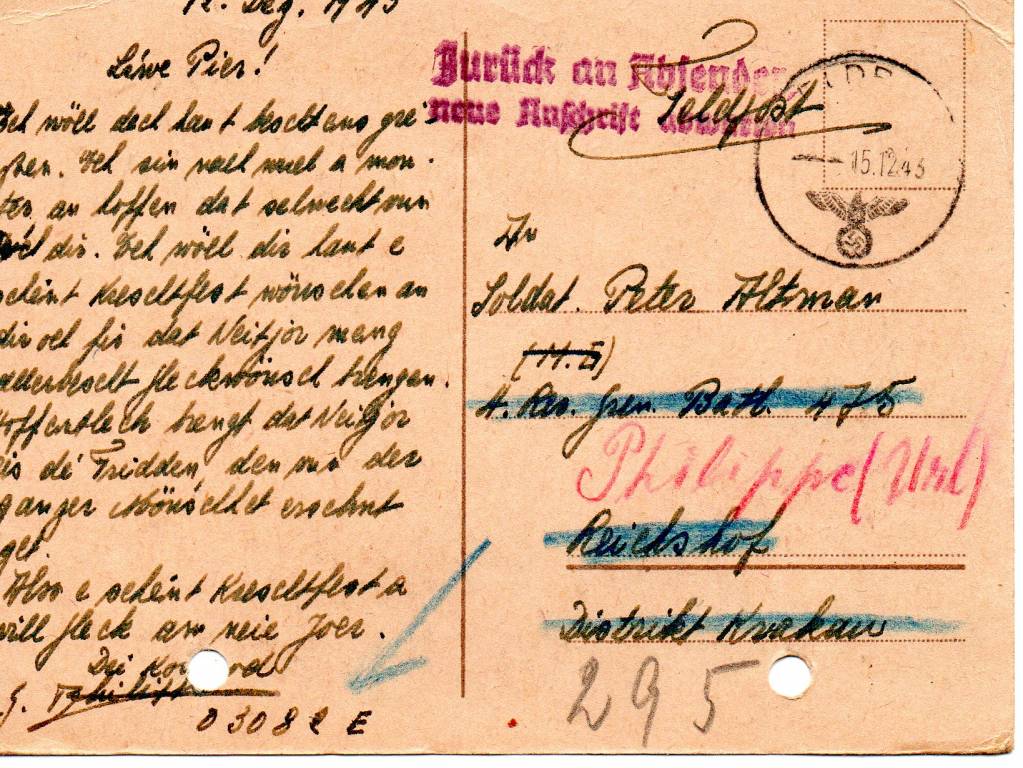 12. Dez. 1943
Léiwe Pier!
Ech wöll dech haut gré
ssen. Ech sin nach a mon
ter an hoffen dat selwecht vun
dir. Ech wöll dir haut e
schéint Kreschtfest wönschen an
dir och fir dat Neitjor
allerbescht Gleckwönsch brengen.
Hoffentlech brengt dat Neitjor
eis dé Fridden, den vun der
ganzer Mönschhet ersehnt
get.
Also e schéint Kreschtfest a
vill Gleck am neie Joer.
Dei
Philipp
03082 E
Zurück an Absender
neue Anschrift abwarten
Feldpost
15.12.43
An
Soldat. Peter Altman
Res. Gren. Batl. 475
Philippe (Url)
Reichshof
Distrikt Krakau
295